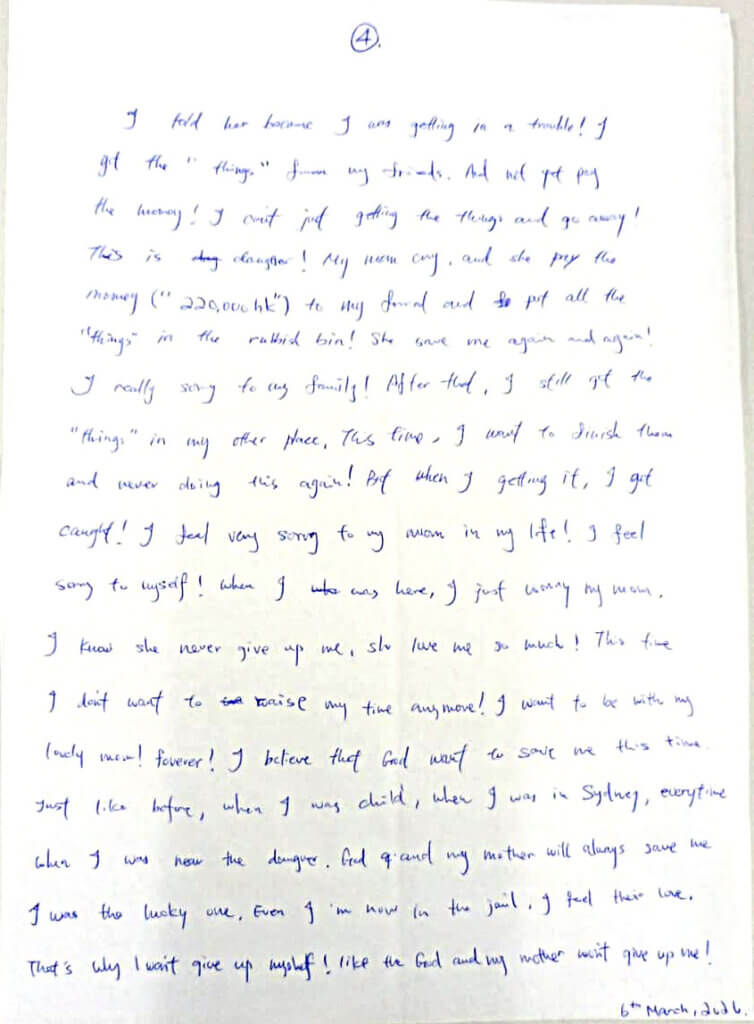 ④.
I told her because I was getting in a trouble! I
got the "things" from my friends. And not yet pay
the money! I can't just getting the things and go away!
This is daugher! My mom cry. and she pay the
money ("220,000 hk") to my friend and put all the
"things" in the rubbid bin! She save me again and again!
I really sorry to my family! After that, I still got the
"things" in my other place. This time, I want to finish them
and never doing this again! But when I getting it, I got
caught! I feel very sorry to my mom in my life! I feel
sorry to myself! When I was here, I just worry my mom.
I know she never give up me, she love me so much! This time
I don't want to waise my time anymore! I want to be with my
lovely mom! forever! I believe that God want to save me this time.
Just like before, when I was child, when I was in Sydney, everytime
when I was near the daugver. God and my mother will always save me
I was the lucky one. Even I'm now in the jail, I feel their love.
That's why I won't give up myself! like the God and my mother won't give up me!
6th March, 2026.